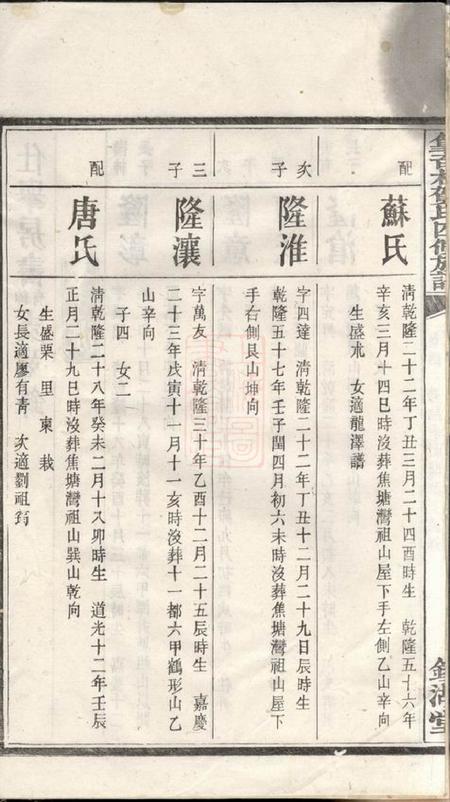 配
蘇氏
清乾隆二十二年丁丑三月二十四酉時生　乾隆五十六年
辛亥三月十四巳時沒葬焦塘灣祖山屋下手左側乙山辛向
生盛朮　女適龍澤譜
次子
隆淮
字四達　清乾隆二十二年丁丑十二月二十九日辰時生
乾隆五十七年壬子閏四月初六未時沒葬焦塘灣祖山屋下
手右側艮山坤向
三子
隆瀼
字萬友　清乾隆三十年乙酉十二月二十五辰時生　嘉慶
二十三年戊寅十一月十一亥時沒葬十一都六甲鶴形山乙
山辛向
子四　女二
配
唐氏
清乾隆二十八年癸未二月十八卯時生　道光十二年壬辰
正月二十九巳時沒葬焦塘灣祖山巽山乾向
生盛栗　里　東　栽
女長適廖有靑　次適劉祖
四修族譜
湖堂